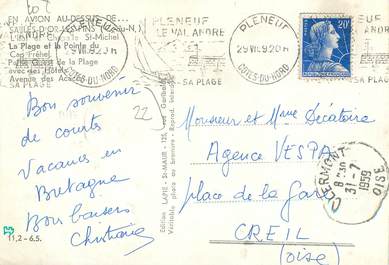 EN AVION AU-DESSUS DE...
SABLES D'OR-LES-PINS (C.-du-N.)
St-Michel
La Plage et la Pointe du
Cap Fréhel
de la Plage
avec ses Hôtels
Avenue des Acacias
PLENEUF
29 VII.59 20H
COTES-DU-NORD
PLENEUF
LE VAL ANDRE
SA PLAGE
PLENEUF
29 VII.59 20H
COTES-DU-NORD
20F
SA PLAGE
Bon souvenir
de courts
Vacances en
Bretagne
Bon baisers
Christiane
22
11,2 - 6.5.
Edition LAPIE - St-MAUR - 125, rue Garibaldi
Véritable photo au bromure - Reprod. interdite
Monsieur et Mme Décatoire
Agence VESPA
place de la Gare
CREIL
(oise)
CLERMONT
8H30
31-7
1959
OISE